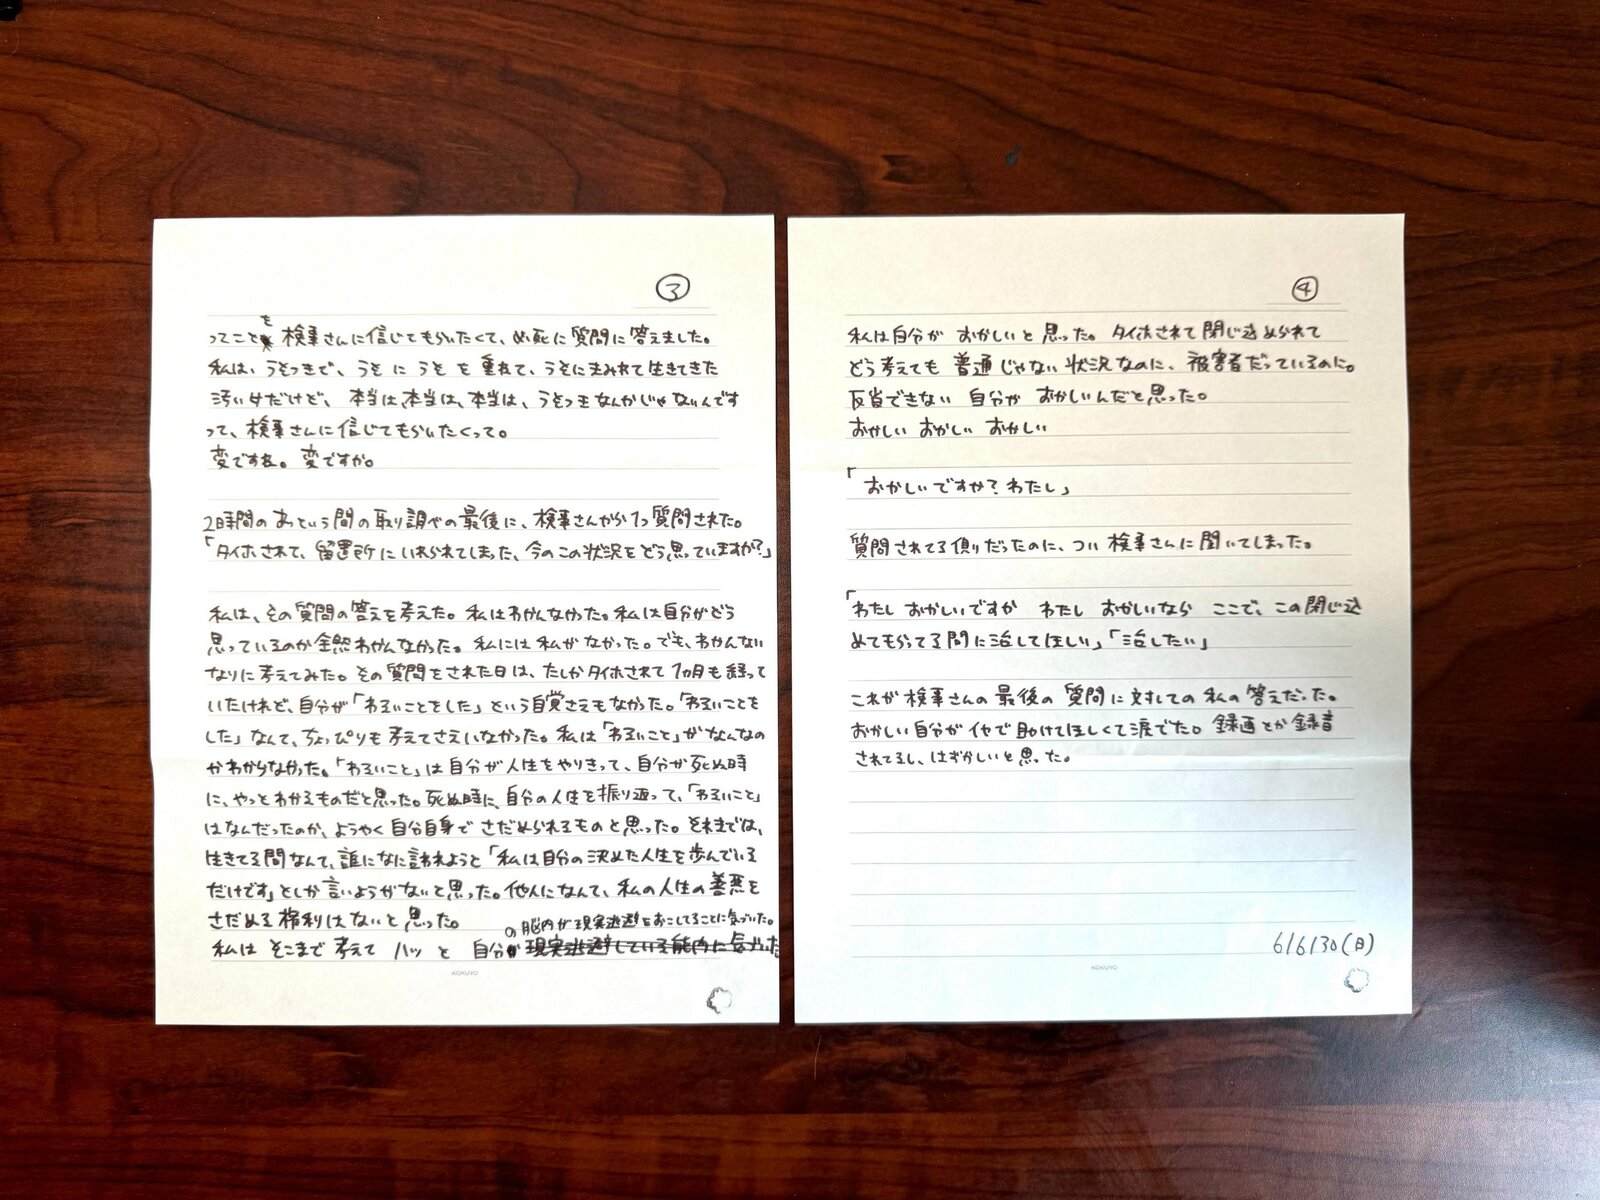 ③
ってことを 検事さんに信じてもらいたくて、必死に質問に答えました。
私は、うそつきで、うそ に うそ を 重ねて、うそにまみれて生きてきた
汚い女だけど、本当は、本当は、本当は、うそつきなんかじゃないんです
って、検事さんに信じてもらいたくって。
変ですね。変ですか。
2時間のあっという間の取り調べの最後に、検事さんから1つ質問された。
「タイホされて、留置所にいれられてしまった、今のこの状況をどう思っていますか?」
私は、その質問の答えを考えた。私はわかんなかった。私は自分がどう
思っているのか全然わかんなかった。私には私がなかった。でも、わかんない
なりに考えてみた。その質問をされた日は、たしかタイホされて1カ月も経って
いたけれど、自分が「わるいことをした」という自覚さえもなかった。「わるいことを
した」なんて、ちょっぴりも考えてさえいなかった。私は「わるいこと」がなんなの
かわからなかった。「わるいこと」は自分が人生をやりきって、自分が死ぬ時
に、やっとわかるものだと思った。死ぬ時に、自分の人生を振り返って、「わるいこと」
はなんだったのか、ようやく自分自身でさだめられるものと思った。それまでは、
生きてる間なんて、誰になに言われようと「私は自分の決めた人生を歩んでいる
だけです」としか言いようがないと思った。他人になんて、私の人生の善悪を
さだめる権利はないと思った。
の脳内が現実逃避をおこしてることに気づいた。
私は そこまで考えて ハッ と 自分が現実逃避している脳内に気づいた
KOKUYO
④
私は自分が おかしいと思った。タイホされて閉じ込められて
どう考えても 普通じゃない状況なのに、被害者だっているのに。
反省できない 自分が おかしいんだと思った。
おかしい おかしい おかしい
「おかしいですか?わたし」
質問されてる側だったのに、つい 検事さんに聞いてしまった。
「わたし おかしいですか わたし おかしいなら ここで、この閉じ込
めてもらってる間に治してほしい」「治したい」
これが検事さんの最後の質問に対しての私の答えだった。
おかしい自分がイヤで助けてほしくて涙でた。録画とか録音
されてるし、はずかしいと思った。
6/6/30(日)
KOKUYO